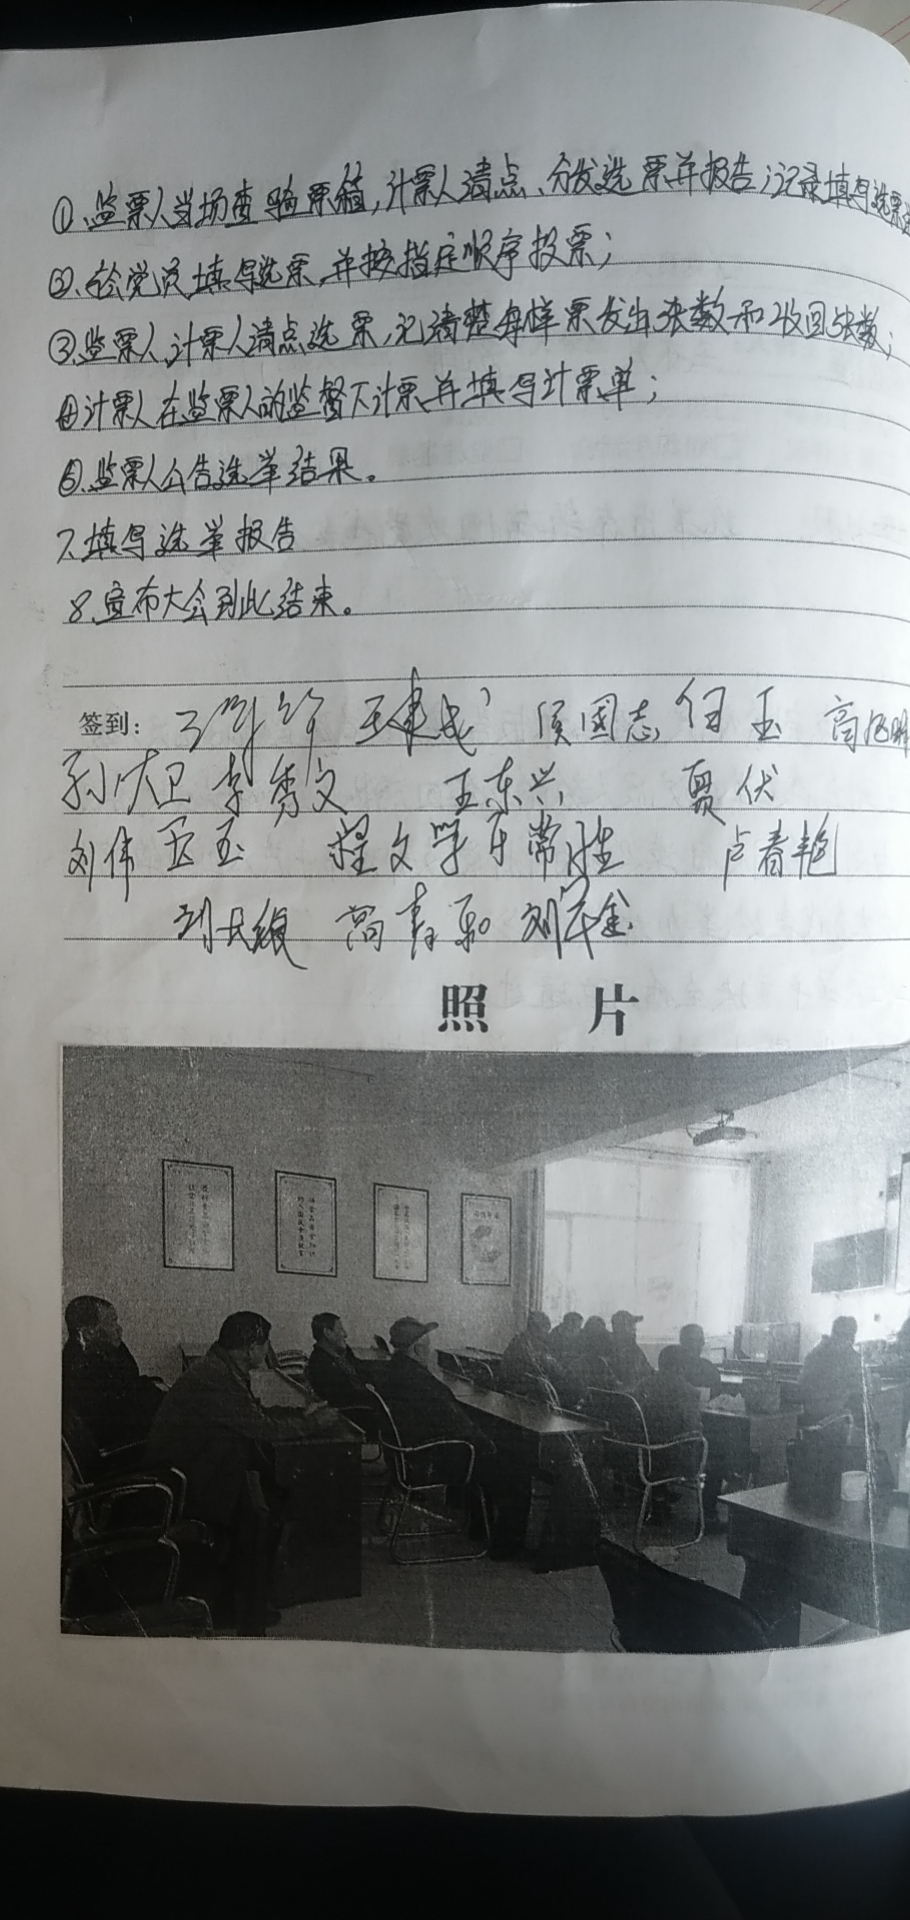 ①、监票人当场查验票箱，计票人清点、分发选票并报告；记录填写选票
②、党员填写选票，并按指定顺序投票；
③、监票人、计票人清点选票，记清楚每样票发出张数和收回张数；
④计票人在监票人的监督下计票并填写计票单；
⑤、监票人公告选举结果。
7、填写选举报告
8、宣布大会到此结束。
签到： 王建成 侯国志 何玉
孙大卫 李秀文 王东兴 贾伏
刘伟 王玉 程文学 牛常胜 卢春艳
高青
照 片